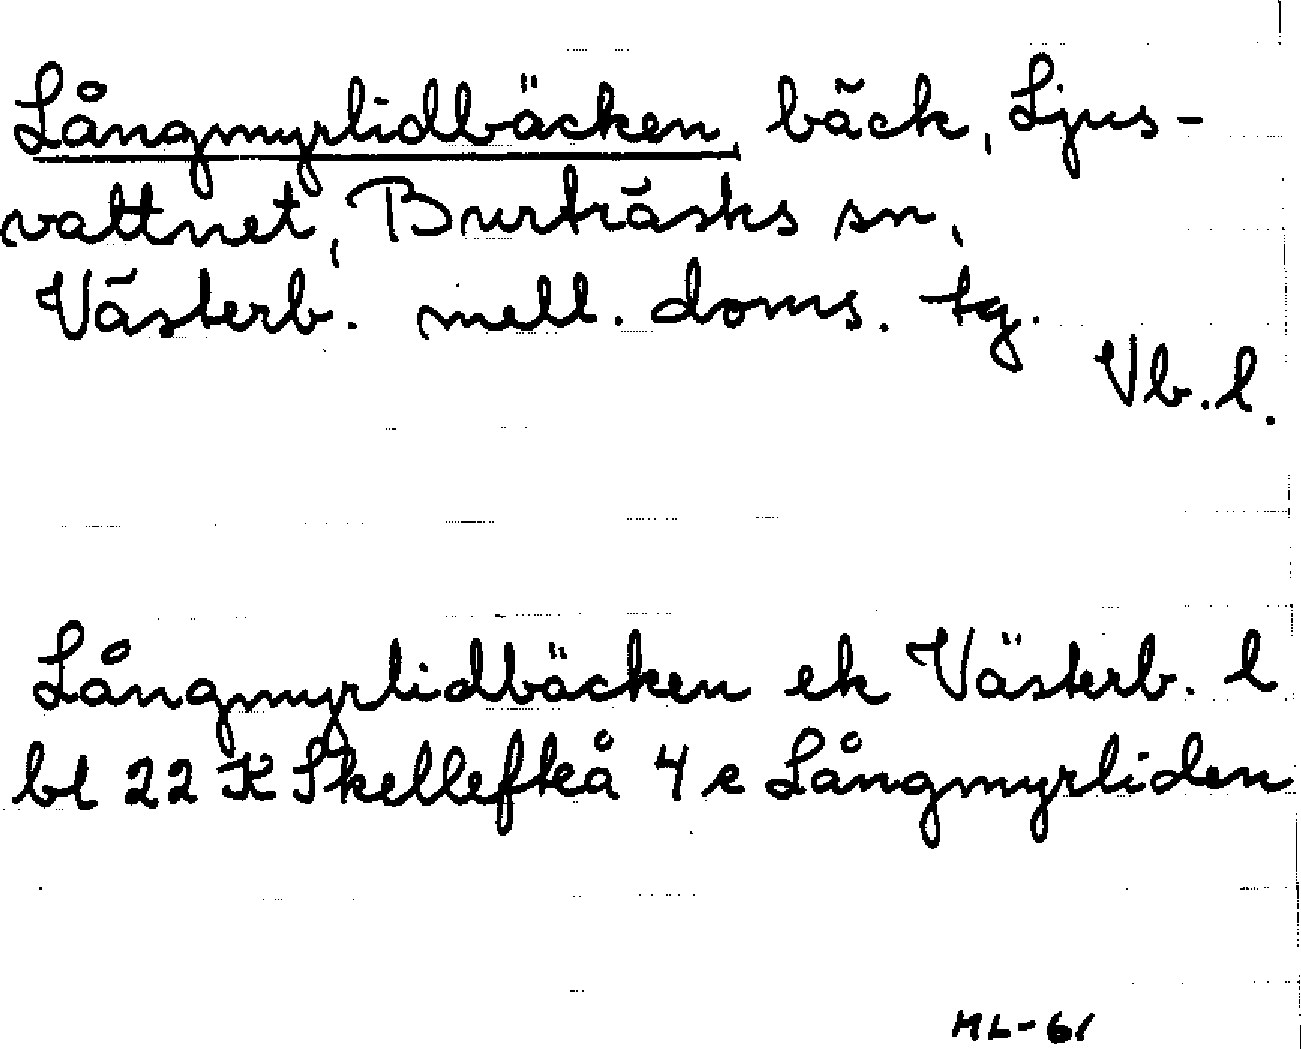 Långmyrlidbäcken, bäck, Ljus-
vattnet, Burträsks sn,
Västerb. mell. doms. tg.
Vb. l.
Långmyrlidbäcken ek Västerb. l
bl 22 K Skellefteå 4 e Långmyrliden
ML-61